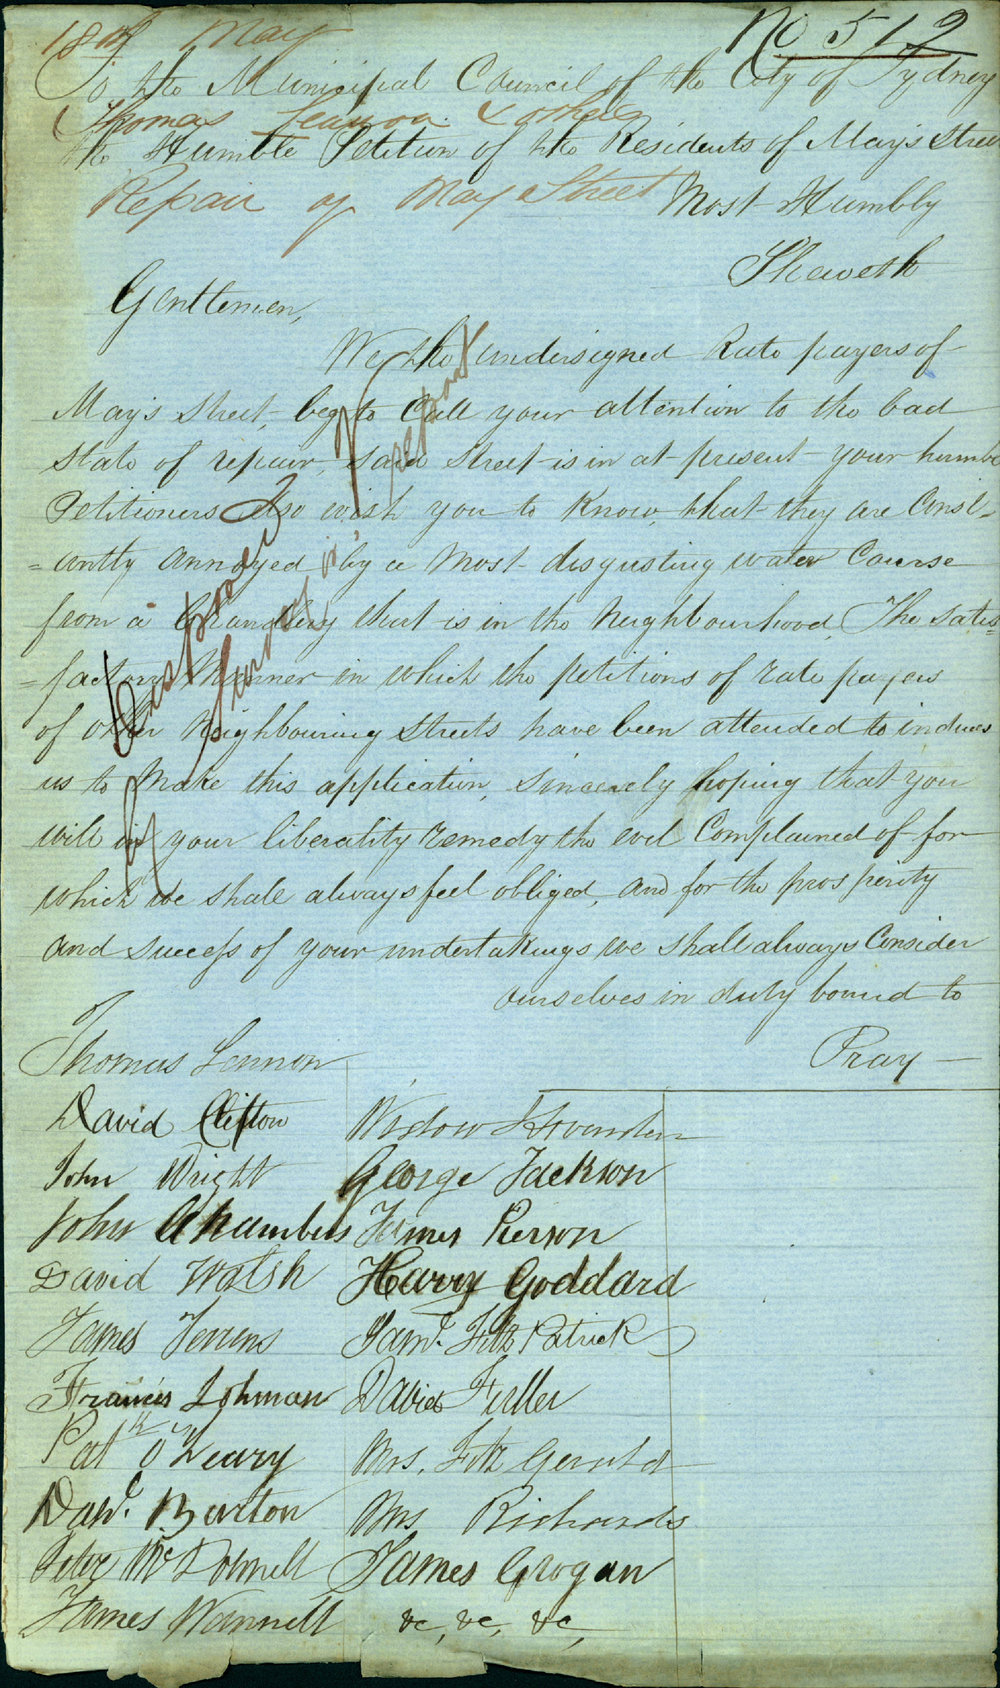 18th May
No 512
To the Municipal Council of the City of Sydney
Thomas Lennon & others
the Humble Petition of the Residents of May's Street
Repair of May Street
Most Humbly
Sheweth
Gentlemen,
We the undersigned Rate payers of
May's Street, beg to Call your attention to the bad
state of repair, said Street is in at present your humble
Petitioners Also wish you to Know, that they are Const-
=antly Annoyed by a Most disgusting water Course
from a that is in the Neighbourhood. The satis=
=factory Manner in which the petitions of rate payers
of other Neighbouring Streets have been attended to induces
us to Make this application, Sincerely hoping that you
will in your liberality remedy the evil Complained of for
which we shall always feel obliged, and for the prosperity
and success of your undertakings we shall always Consider
ourselves in duty bound to
Pray —
Surveyor
report
Thomas Lennon
David Clifton
John Wright
John Chambers
David Walsh
James
Francis Lohman
Patk O'Leary
Danl. Burton
Peter McDonnell
James Wannell
Widow
George Jackson
James Pierson
Harry Goddard
Saml. Fitz Patrick
David Fuller
Mrs. Fitz Gerald
Mrs Richards
James Grogan
&c, &c, &c,